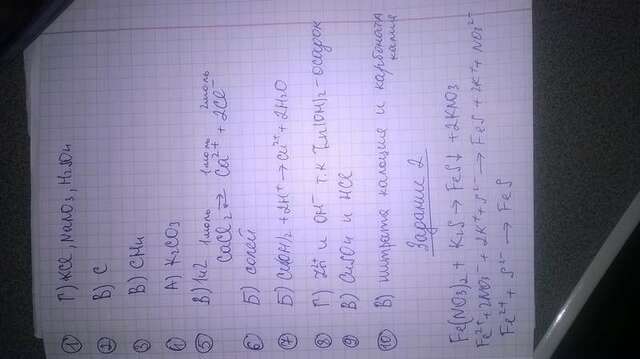 1 Г) KCl, NaNO3, H2SO4
2 В) С
3 В) CH4
4 А) K2CO3
5 В) 1и2 1моль 1моль 2моль
CaCl2 ⇄ Ca2+ + 2Cl-
6 Б) солей
7 Б) Cu(OH)2 + 2H+ → Cu2+ + 2H2O
8 Г) Zn2+ и OH- т.к Zn(OH)2 - осадок
9 В) CuSO4 и HCl
10 В) нитрата кальция и карбоната калия
Задание 2
Fe(NO3)2 + K2S → FeS↓ + 2KNO3
Fe2+ + 2NO3- + 2K+ + S2- → FeS + 2K+ + NO3-
Fe2+ + S2- → FeS